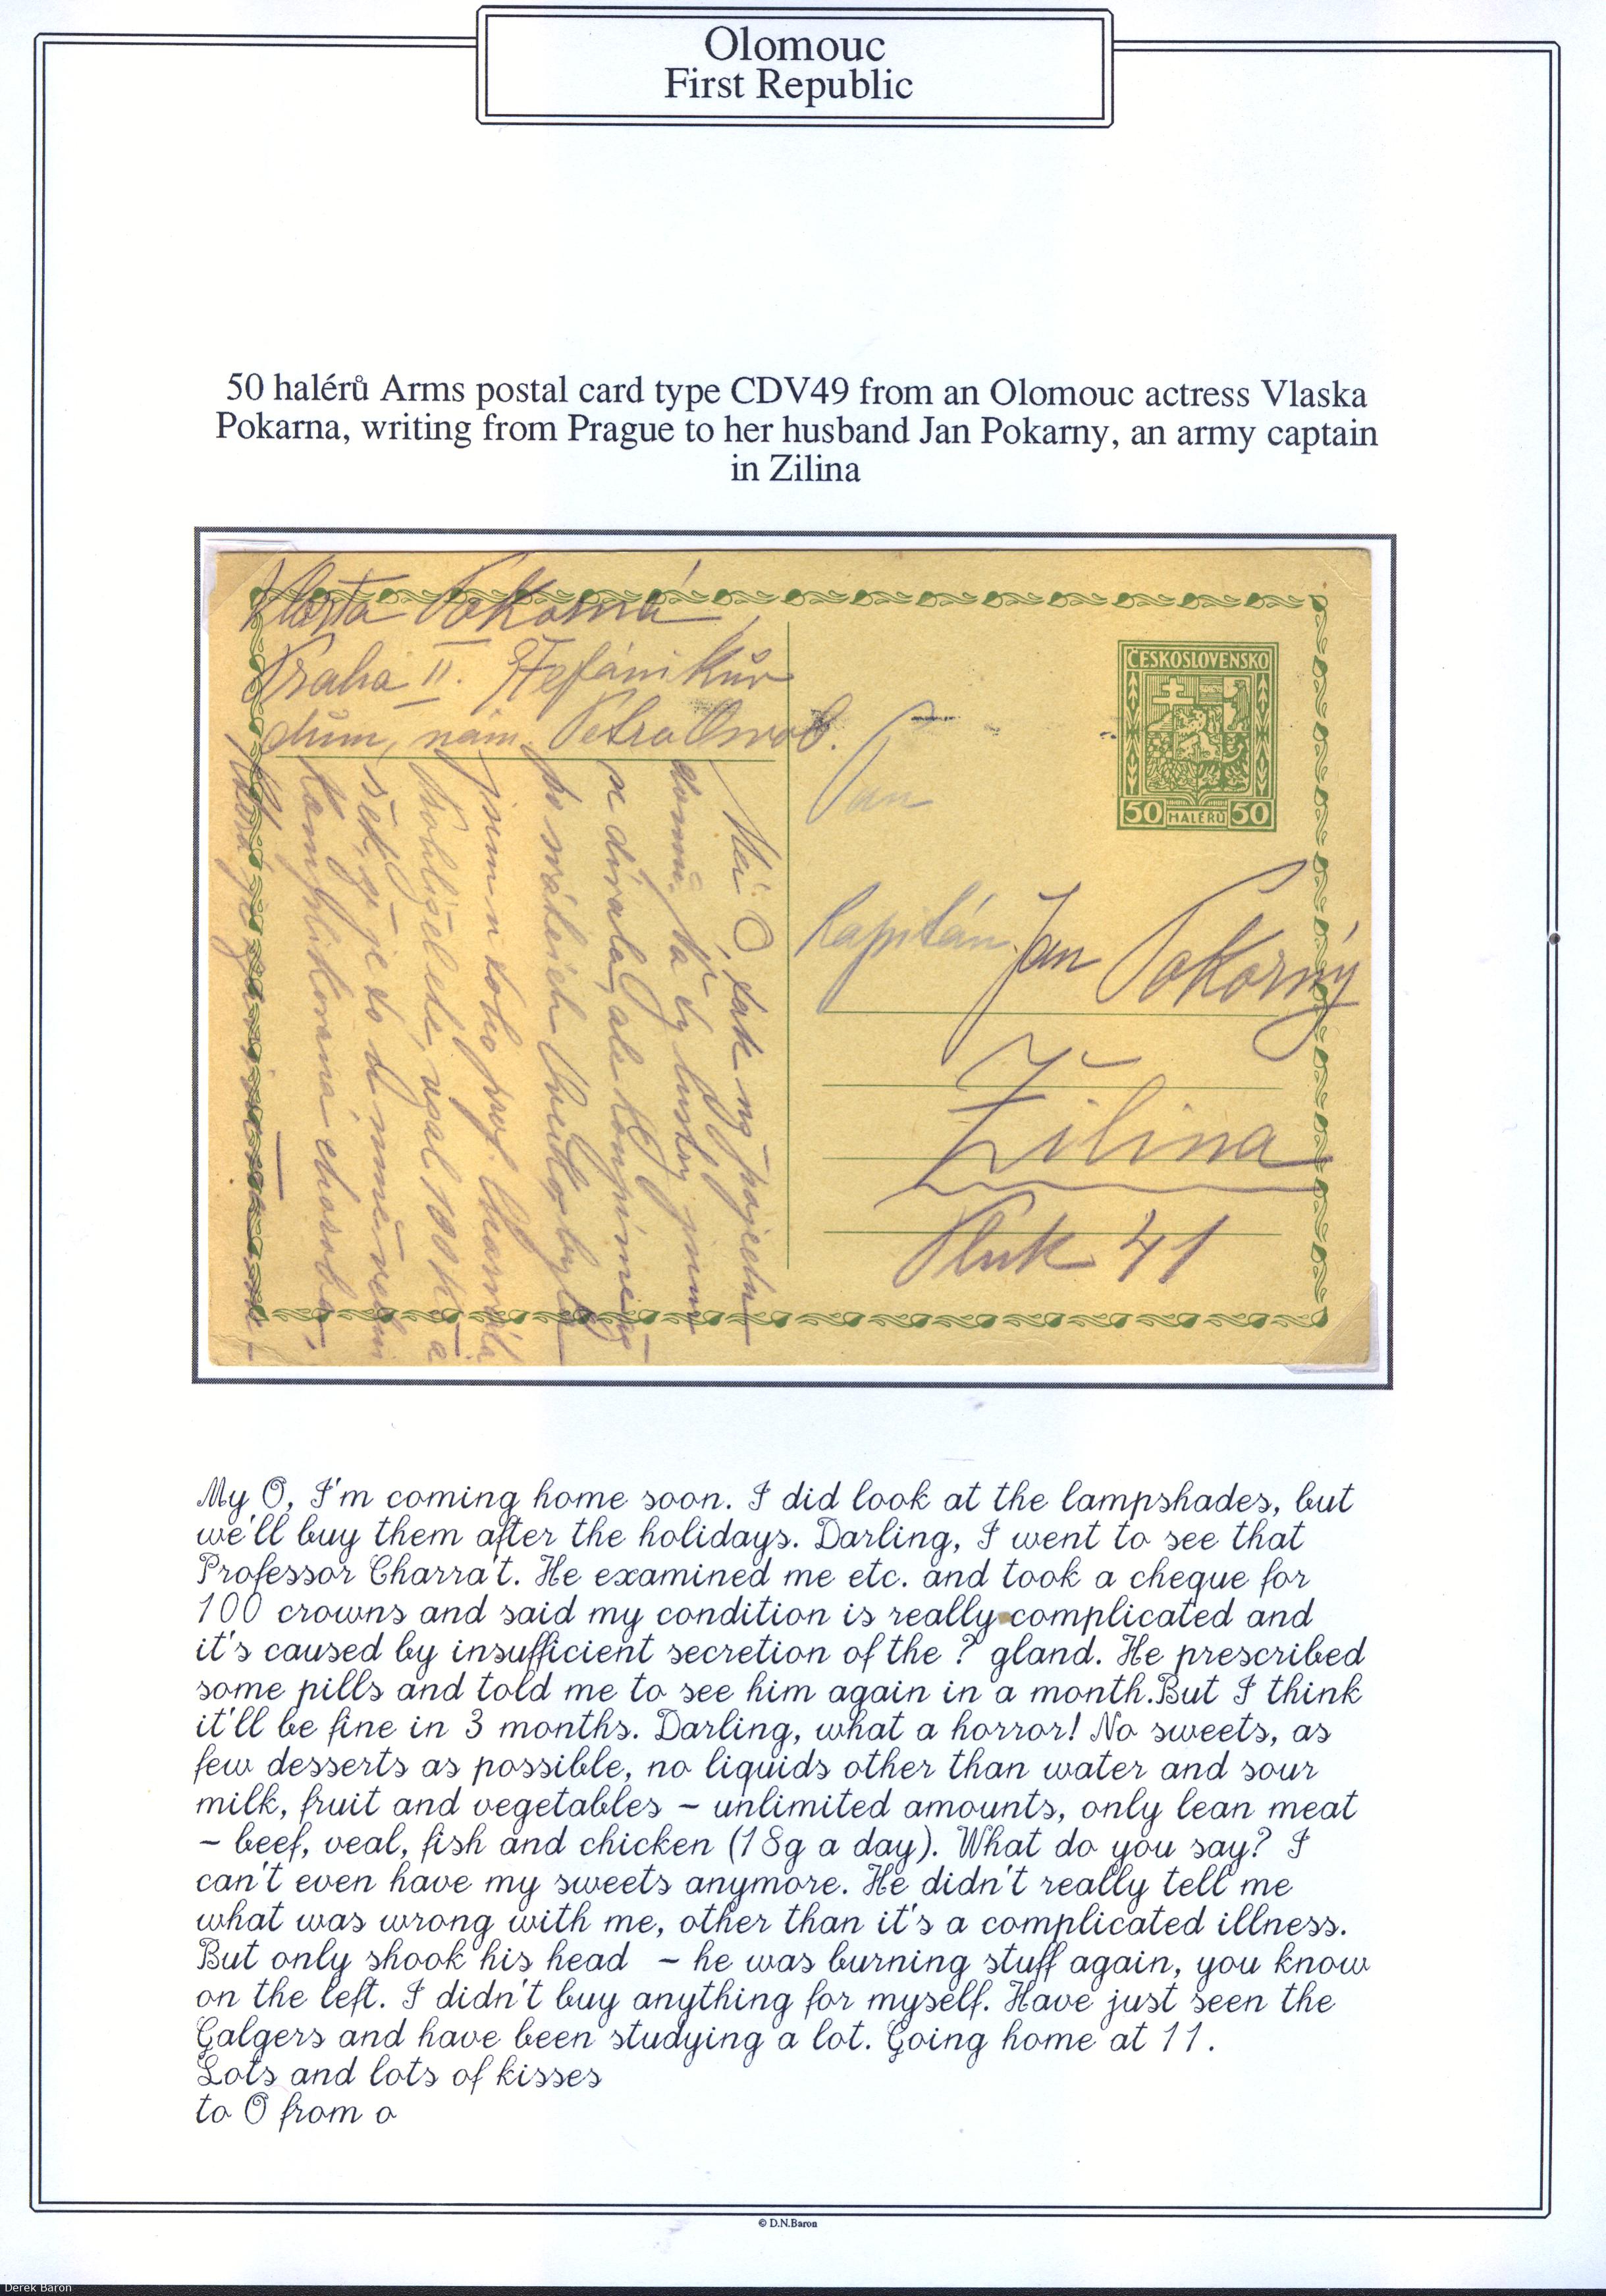 Olomouc
First Republic
50 halérů Arms postal card type CDV49 from an Olomouc actress Vlaska
Pokarna, writing from Prague to her husband Jan Pokarny, an army captain
in Zilina
Vlasta Pokorná,
Praha II. Štefánikův
dům, nám. Petra Osvob.
ČESKOSLOVENSKO
50 HALÉRŮ 50
Pan
Kapitán Jan Pokorný
Žilina
Pluk 41
Můj O, tak už pojedu
domů.
se dívala, ale koupíme
po svátcích
jsem u toho prof. Charváta
Prohlížel etc, vzal 100 Kč a
komplikovaná choroba,
My O, I'm coming home soon. I did look at the lampshades, but
we'll buy them after the holidays. Darling, I went to see that
Professor Charra't. He examined me etc. and took a cheque for
100 crowns and said my condition is really complicated and
it's caused by insufficient secretion of the ? gland. He prescribed
some pills and told me to see him again in a month.But I think
it'll be fine in 3 months. Darling, what a horror! No sweets, as
few desserts as possible, no liquids other than water and sour
milk, fruit and vegetables - unlimited amounts, only lean meat
- beef, veal, fish and chicken (18g a day). What do you say? I
can't even have my sweets anymore. He didn't really tell me
what was wrong with me, other than it's a complicated illness.
But only shook his head - he was burning stuff again, you know
on the left. I didn't buy anything for myself. Have just seen the
Galgers and have been studying a lot. Going home at 11.
Lots and lots of kisses
to O from o
© D.N.Baron
Derek Baron